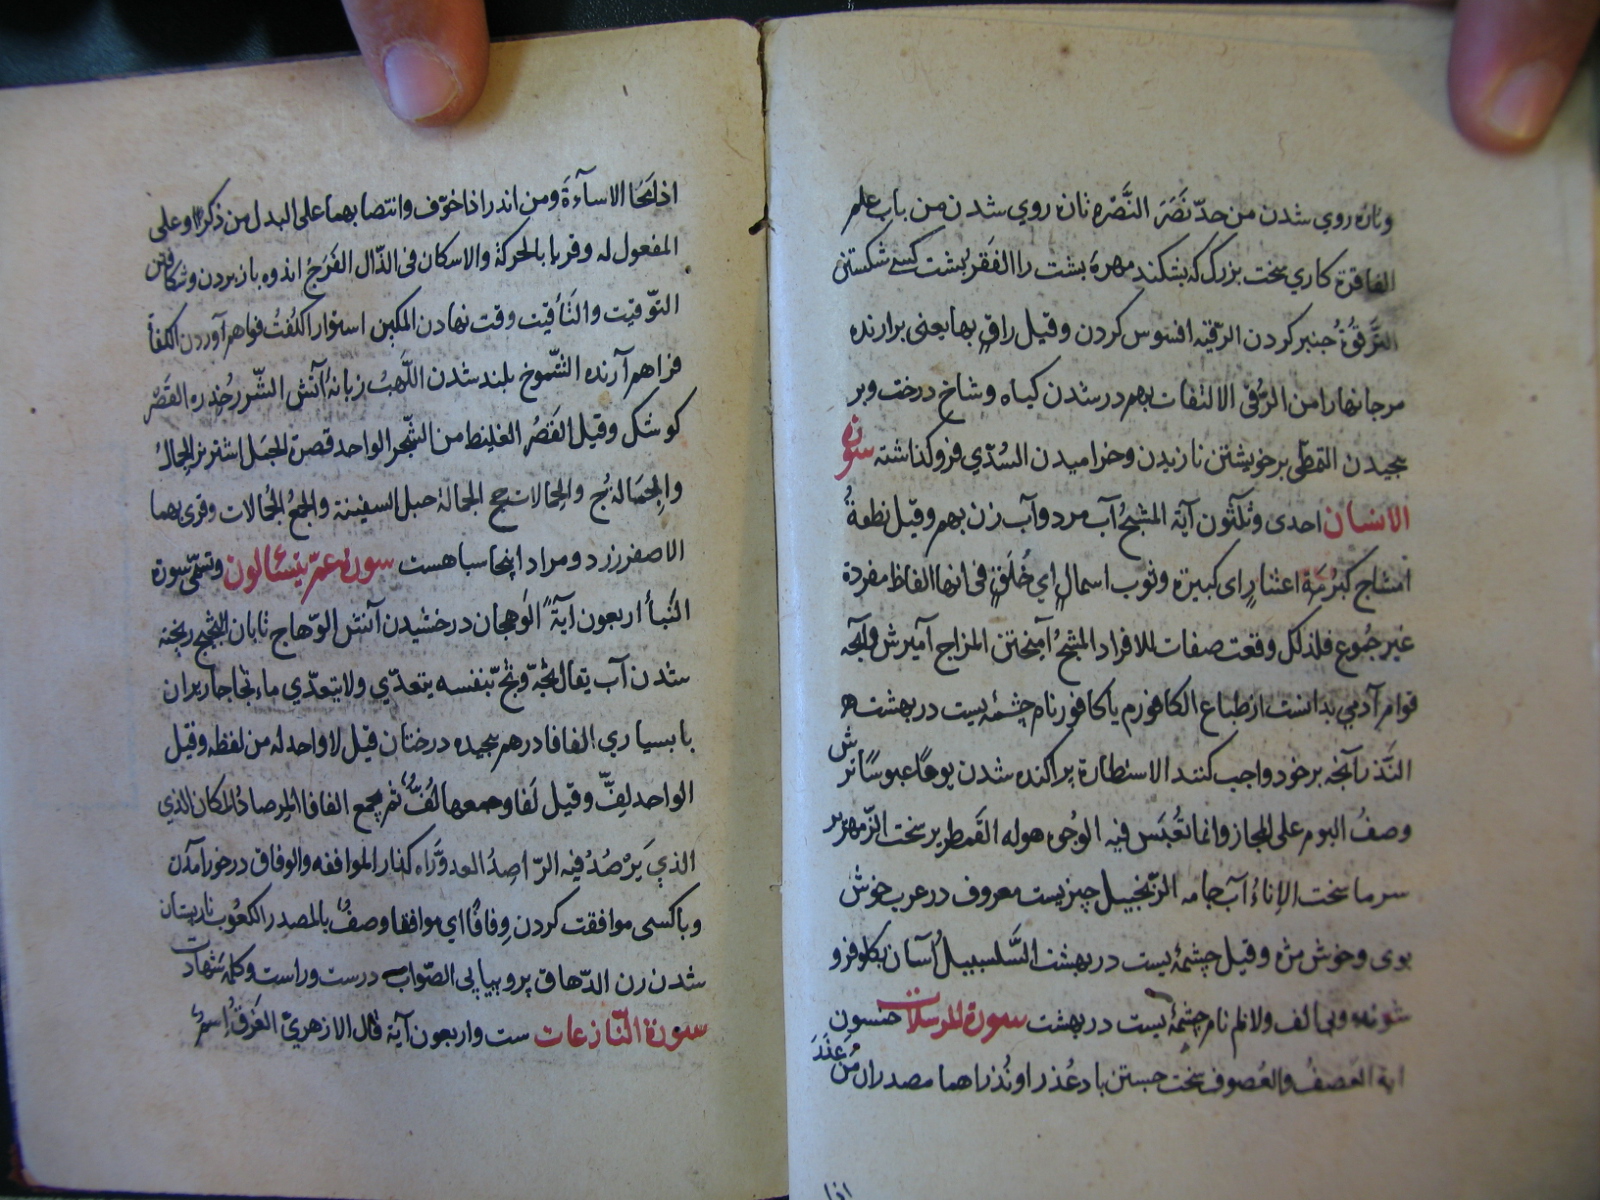 وتازه روي شدن من حدّ نَصَرَ النَّضْرَه تازه روي شدن من باب علم
الفاقرة كاري سخت بزرگ كه بشكند مهرهٔ پشت را الفَقر پشت كسے شكستن
الترقوُةُ چنبر كردن الرّقيه افسوس كردن وقيل راقٍ بها يعنى برارنده
مر جانها را من الرُّقى الالتفات بهم در شدن كياه وشاخ درخت وبر
پيچيدن التمطّى بر خويشتن نازيدن وخراميدن السُدّي فرو كذاشته سورة
الانسان احدى وثلٰثون آية المشيجُ آب مرد وآب زن بهم وقيل نطفةُ
امشاج كبُرْمَةٍ اعشارٍ اى كبيرة وثوب اسمالٍ اي خُلَقٍ فى انها الفاظ مفردة
غير جُموعٍ فلذلك وقعت صفات للافراد المشجُ آميختن المزاج آميزش وآنچه
قوام آدمي بدانست از طباع الكافور م يا كافور نام چشمهٔ يست در بهشت
النَّذر آنچه بر خود واجب كنند الاستطارة پراكنده شدن يومًا عبوسًا ترش
وصفُ اليوم على المجاز وانما تَعْبَس فيه الوُجوه هوله القَمطرير سخت الزّمهرير
سرما سخت الإناءُ آب جامه الزّنجبيل چيزيست معروف در عرب خوش
بوى وخوش مزه وقيل چشمهٔ يست در بهشت السَّلسبيلُ آسان بكلو فرو
شونده وبى الف ولام نام چشمهٔ يست در بهشت سورة المرسلات خمسون
اية العَصفُ والعُصوف سخت جستن باد عُذرا ونُذرا هما مصدران من عَذَرَ
اذا
اذا مَحَا الاسآءةَ ومن انذر اذا خوّف وانتصابهما على البدل من ذكرًا وعلى
المفعول له وقريا بالحركة والاسكان فى الذّال الفَرَجُ اندوه باز بردن وشكافتن
التّوقيت والتَأقيت وقت نهادن المكين استوار الكَفْتُ فراهم آوردن الكفاة
فراهم آرنده الشّموخ بلند شدن اللّهبُ زبانهٔ آتش الشّرر خُدره القَصْر
كوشك وقيل القَصْرُ الغليظ من الشّجر الواحد قصرة الجمَل اشتر نر الجِمالُ
والجِمَالة ج والجِمَالات جج الجمالة حبل السفينة والجمعُ الجُمالات وقرى بهما
الاصفر زرد ومراد اينجا سياهست سورة عمّ يتسٰالون وتسمّى سورة
النّبأ اربعون آيةً الوَهَجان درخشيدن آتش الوّهاج تابان الثّجيج ريخته
شدن آب يقال ثجّه وثجّ بنفسه يتعدّي ولا يتعدّي ماء ثجّاجا ريزان
با بسياري الفافا درهم پيچيده درختان قيل لا واحد له من لفظه وقيل
الواحد لِفٌّ وقيل لَفّا وجمعها لُفٌّ ثم يجمع الفافا المِرصادُ المكان الذي
الذي يَرْصُدُ فيه الرّاصِدُ العدوَّ راه كذار الموافقه والوفاق درخور آمدن
وبا كسى موافقت كردن وِفاقًا اي موافقا وصفٌ بالمصدر الكعُوب نار پستان
شدن زن الدّهاق پر وپياپى الصّواب درست وراست وكلمهٔ شهادت
سورة النّازعات ست واربعون آية قال الازهريّ الغَرقُ اسمٌ